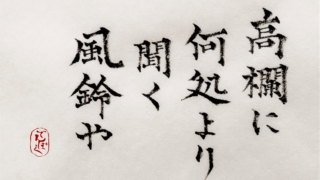 高欄に
何処より
聞く
風鈴や